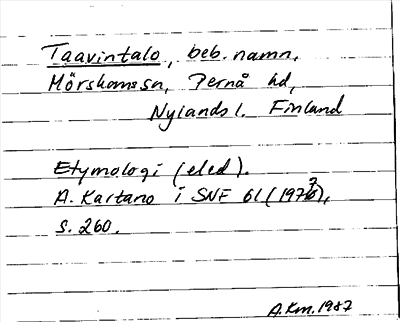 Taavintalo, beb. namn,
Mörskoms sn, Pernå hd,
Nylands l. Finland
Etymologi (eled).
A. Kartano i SNF 61 (1973),
s. 260.
A.Km. 1987